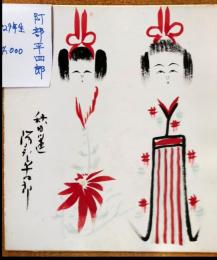 阿部平四郎
29年生
5,000
秋田遷
阿部平四郎